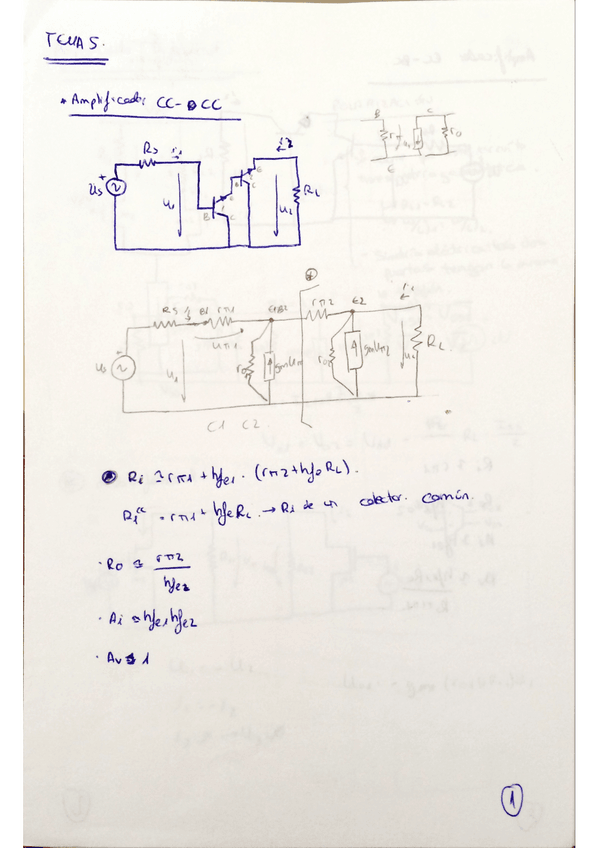 TEMA 5.
* Amplificador CC-CC
B C
rπ ro
E
Rs i1 i2
B E C B E C
us + u1 u2 RL
Rs i1 B1 rπ1 E1B2 rπ2 E2 i2
uπ1
us + u1 ro gmuπ1 ro2 gmuπ2 u2 RL
C1 C2
Ri ≅ rπ1 + hfe1 · (rπ2 + hfe RL).
Ri^cc = rπ1 + hfe RL → Ri de un colector común.
· Ro ≅ rπ2 / hfe2
· Ai ≅ hfe1 hfe2
· Av ≅ 1
1